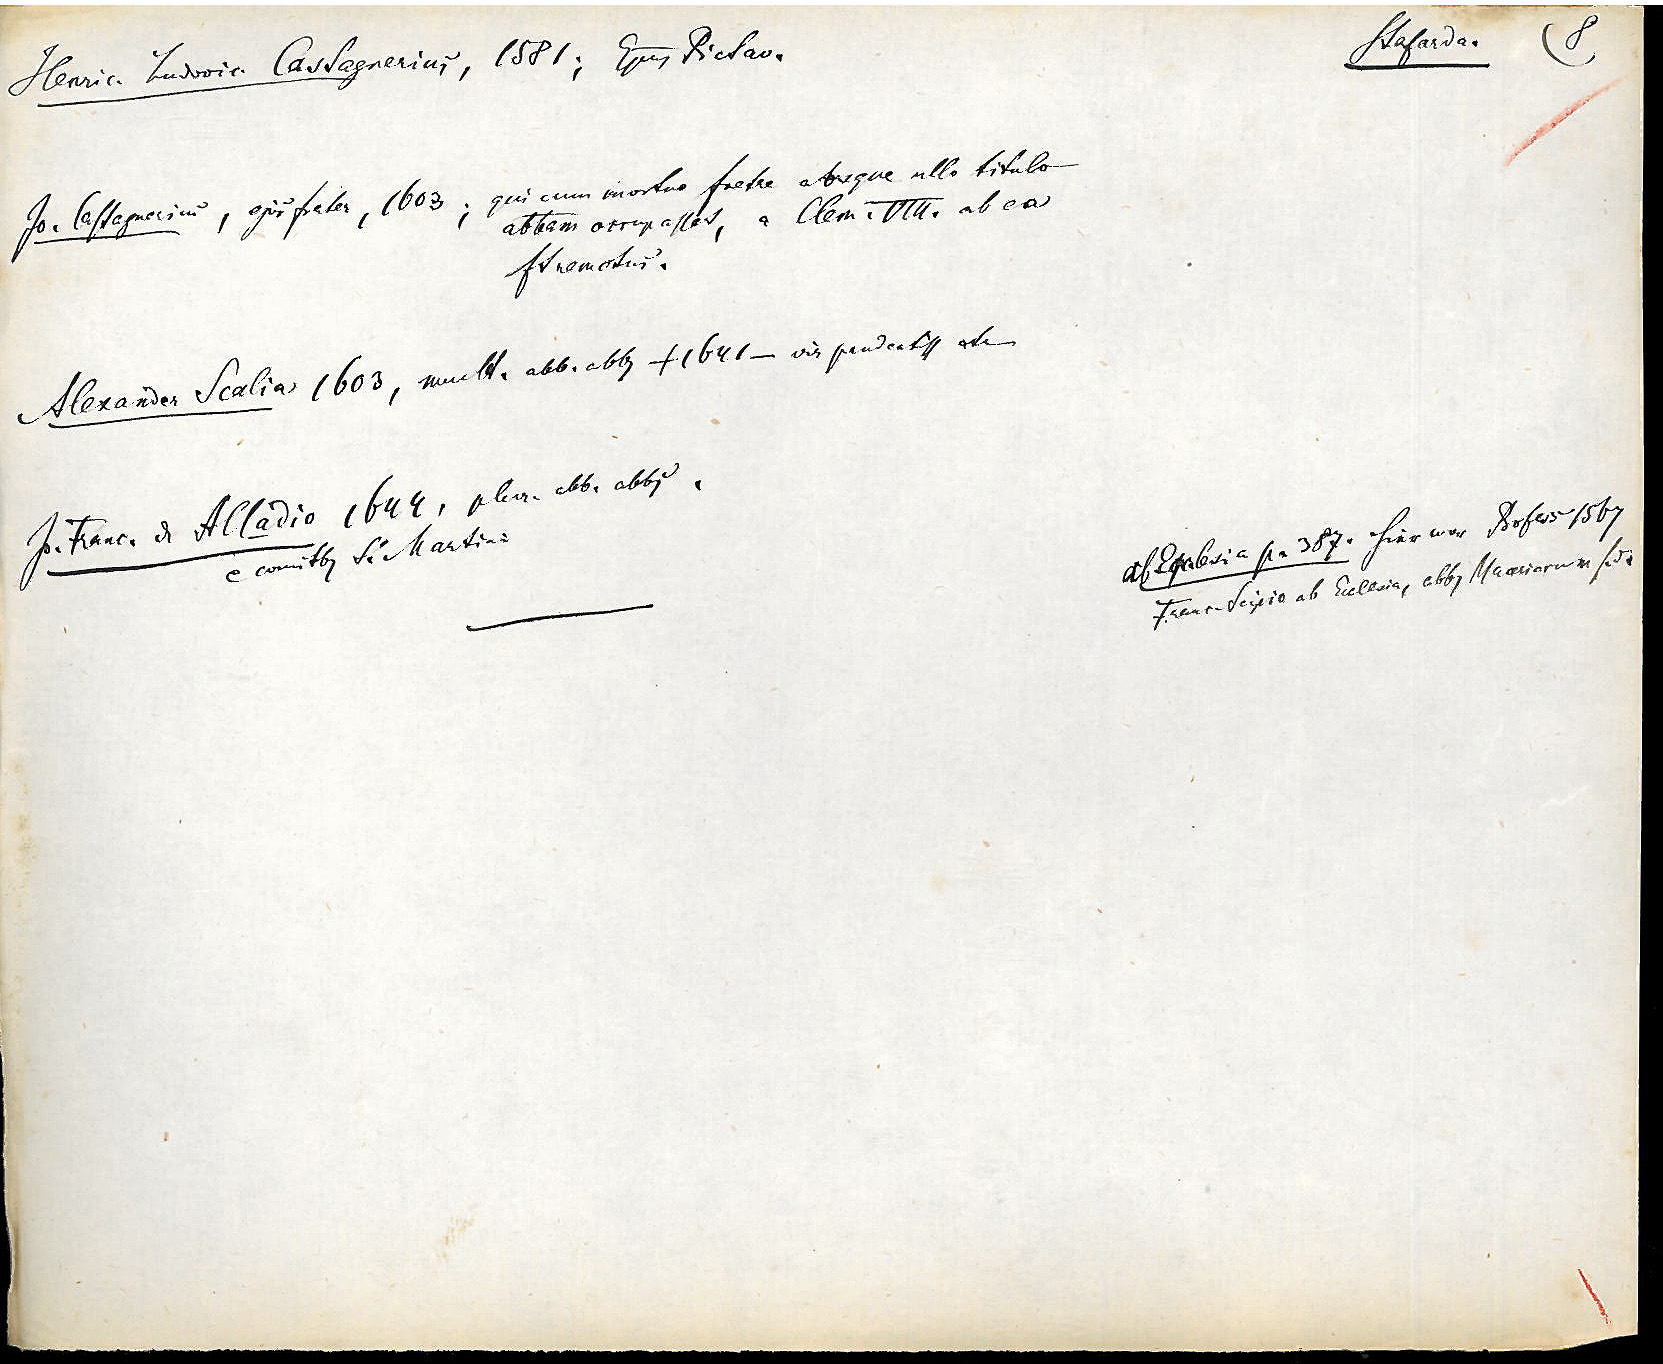 Stafarda. (8
Henric. Ludovic. Castagnerius, 1581; Epus Pictav.
Jo. Castagnerius, ejus frater, 1603; qui cum mortuo fratre absque ullo titulo
abbam occupasset, a Clem. VIII. ab ea
remotus.
Alexander Scalia 1603, mult. abb. abbs +1641 — vir prudentiss etc
Jo. Franc. de Alladio 1644, plur. abb. abbs.
e comitbs Si Martini
ab Ecclesia p. 387. hier war Profess 1567
Franc. Scipio ab Ecclesia, abbs